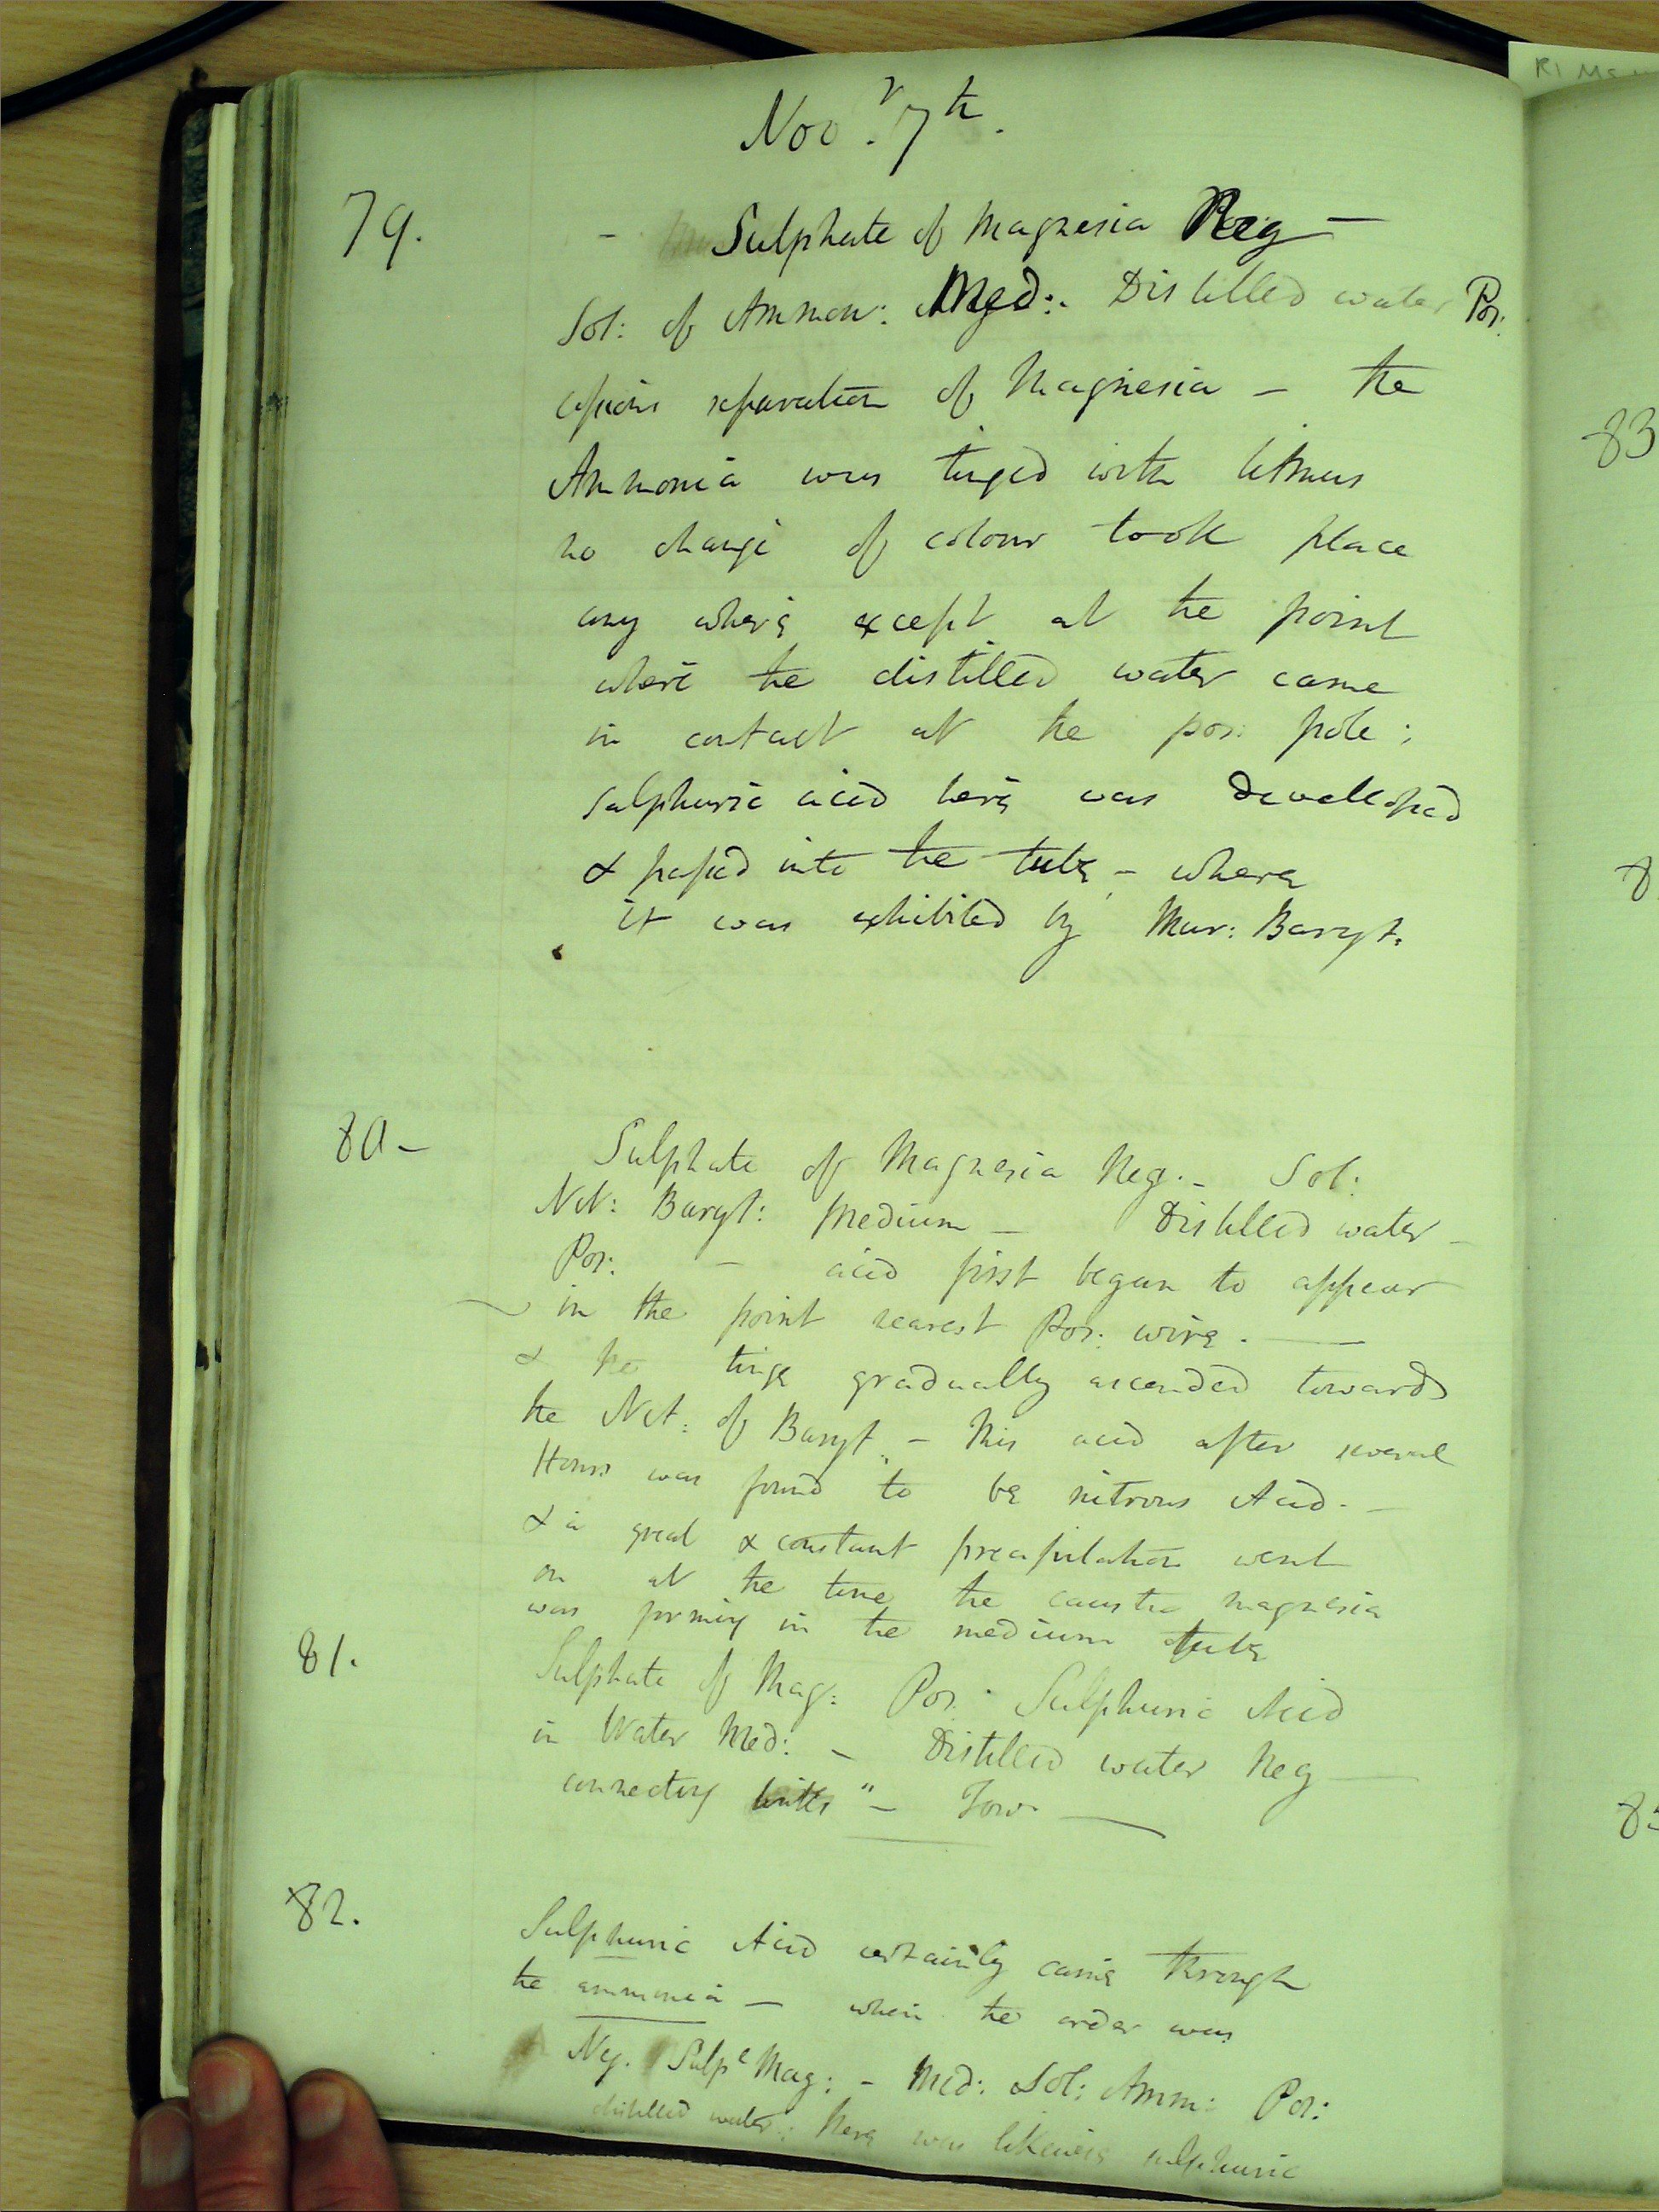 RI MS
Novr. 7th.
79. - Sulphate of Magnesia Neg -
Sol: of Ammon: Med:. Distilled water Pos:
copious separation of Magnesia - the
Ammonia was tinged with litmus
no change of colour took place
any where except at the point
where the distilled water came
in contact at the pos: pole;
sulphuric acid here was develloped
& passed into the tube - where
it was exhibited by Mur: Baryt:
80- Sulphate of Magnesia Neg.- Sol:
Nit: Baryt: Medium - Distilled water -
Pos: - acid first began to appear
in the point nearest Pos: wire. -
& the tinge gradually ascended towards
the Nit: of Baryt - this acid after several
Hours was found to be nitrous Acid. -
& a great & constant precipitation went
on at the time the caustic magnesia
was forming in the medium tube
81. Sulphate of Mag: Pos: Sulphuric Acid
in Water Med: - Distilled water Neg -
connecting - Tow -
82. Sulphuric Acid certainly came through
the ammonia - when the order was
Neg. Sulpe Mag: - Med: Sol: Amm: Pos:
distilled water; here was likewise sulphuric
83
8
85